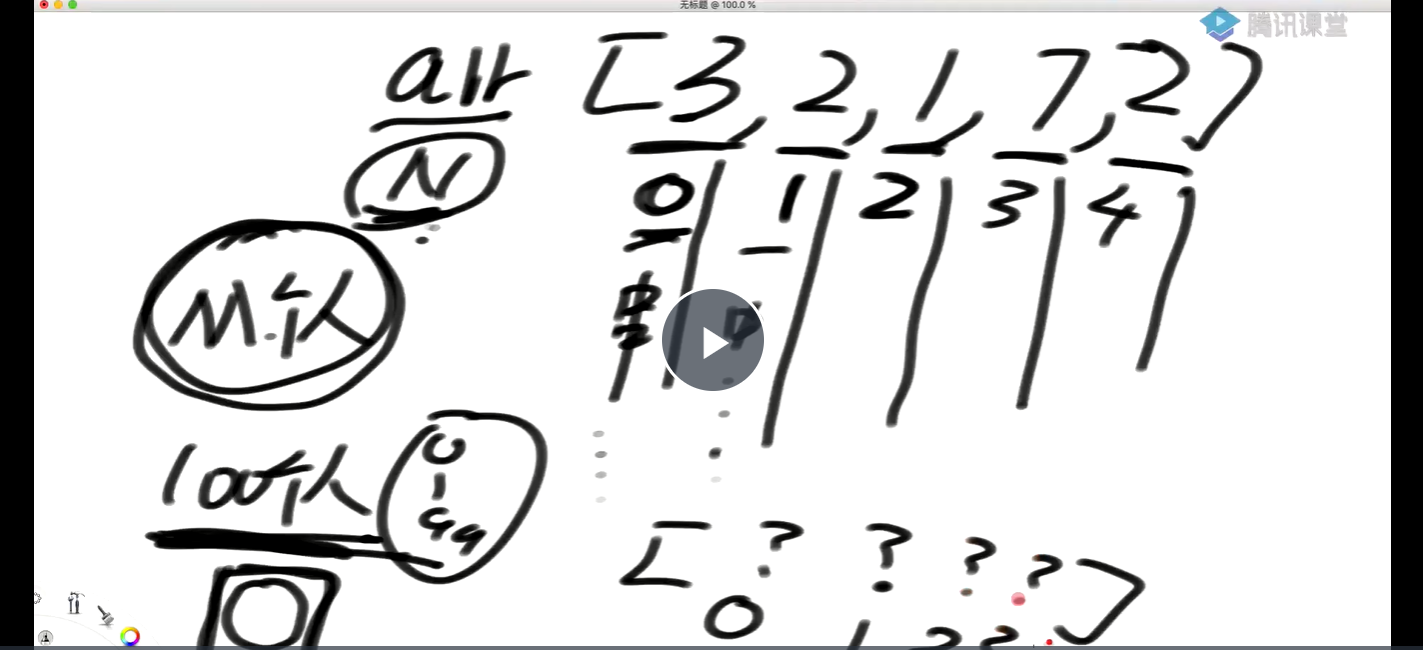 无标题 @ 100.0 %
腾讯课堂
arr [3, 2, 1, 7, 2]
N 0 1 2 3 4
M个人
100个人 0
99
[ ? ? ? ? ]
0 1 2